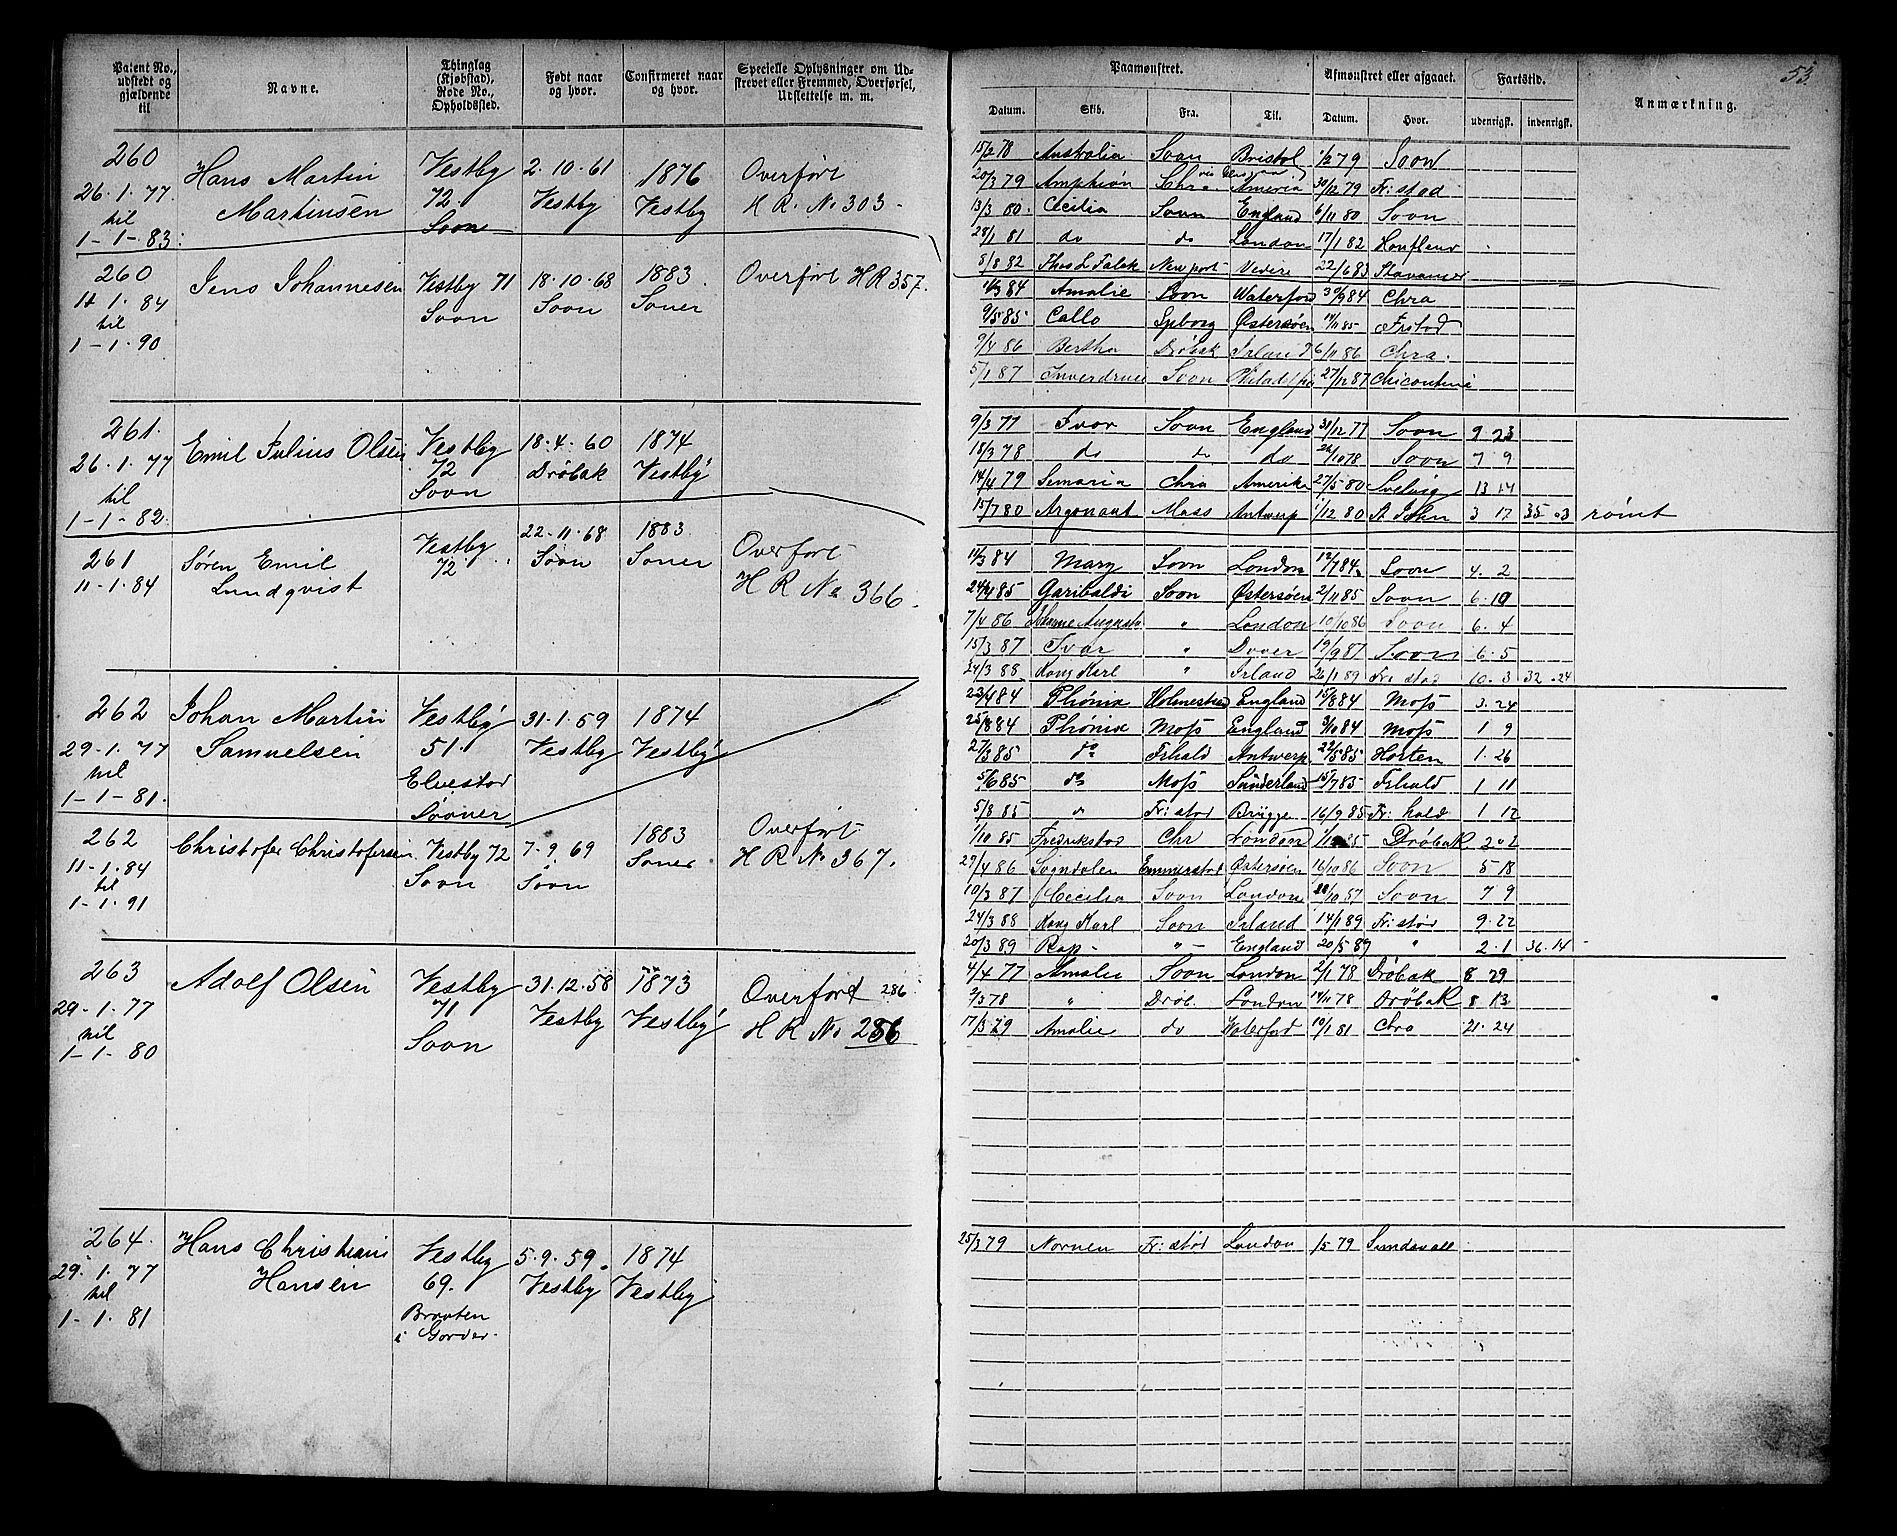 53.
Patent No., udstedt og gjældende til
Navne.
Thinglag (Kjøbstad), Rode No., Opholdssted.
Født naar og hvor.
Confirmeret naar og hvor.
Specielle Oplysninger om Udstrevet eller Fremmed, Overførsel, Udslettelse m. m.
260 Hans Martin Vestby 2.10.61 1876 Overført
26.1.77 Martinsen 72. Vestby Vestby H R. No 303.
til Soon
1-1-83.
260 Jens Johannesen Vestby 71 18.10.68 1883 Overført H R 357.
1.84 Soon Soon Soner
til
1-1.90
261. Emil Julius Olsen Vestby 18.4.60 1874
26.1.77 72 Drøbak Vestby
til Soon
1-1-82.
261 Søren Emil Vestby 22.11.68 1883 Overført
11-1.84 Lundqvist 72 Soon Soner H R No 366.
262 Johan Martin Vestby 31.1.59 1874
29-1.77 Samuelsen 51. Vestby Vestby
til Elvestad
1-1-81. Sooner
262 Christofer Christofersen Vestby 72 7.9.69 1883 Overført
11-1.84 Soon Soon Soner H R No 367.
til
1-1.91
263 Adolf Olsen Vestby 31.12.58 1873 Overført 286
29-1.77 71 Vestby Vestby H R No 286
til Soon
1-1-80
264. Hans Christian Vestby 5.9.59. 1874
29.1.77 Hansen 69. Vestby Vestby
til Braaten
1-1.81 i Gorder.
Paamønstret. Afmønstret eller afgaaet. Fartstid. Anmærkning.
Datum. Skib. Fra. Til. Datum. Hvor. udenrigsk. indenrigsk.
15/2 78 Australia Soon Bristol 1/2 79 Soon
20/3 79 Amphion Chra America 30/12 79 Fr:stad
13/3 80. Cecilia Soon England 6/11 80 Soon
28/1 81 do do London 17/1 82 Honfleur
5/8 82 Thos L Falck Newport 22/6 83 Stavanger
84 Amalie Soon Waterford 84 Chra
9/5 85 Callo Spborg Østersøen 85 Frstad
9/4 86 Bertha Drøbak Irland 6/11 86 Chra.
5/1 87 Soon Philadelphia 27/12 87 Chicoutimi
9/3 77 Ivar Soon England 31/12 77 Soon 9 23
15/3 78 do do do 26/10 78 Soon 7 9
14/4 79 Semaria Chra Amerika 27/5 80 Svelvig 13 14
15/7 80 Argonaut Moss Antwerp 1/12 80 St John 3 17 35.03 rømt
11/3 84 Mary Soon London 12/7 84 Soon 4.2
85 Garibaldi Soon Østersøen 2/11 85 Soon 6.19
7/4 86 Johanne Augusta " London 10/10 86 Soon 6.4
15/3 87 Ivar " Dover 19/9 87 Soon 6.5
24/3 88. Kong Karl " Irland 26/1 89 Fr: stad 10.3 32.24
23/4 84 Phønix Holmestrand England 15/8 84 Moss 3.24
25/8 84 Phønix Moss England 3/10 84 Moss 1 9
27/3 85 do Frhald Antwerp 22/5 85 Horten 1.26
5/6 85 do Moss Sunderland 15/7 85 Frhald 1 11
5/8 85 Fr:stad Brügge 16/9 85 Fr: hald 1 12
1/10 85 Fredrikstad Chr London 85 Drøbak 2 02
29/4 86 Sogndalen Emmerstad Østersøen 16/10 86 Soon 5 18
10/3 87 Cecilia Soon London Soon 7 9
24/3 88 Kong Karl Soon Irland 14/1 89 Fr:stad 9.22
20/3 89 Rap " England 20/5 89 " 2.1 36.14
4/4 77 Amalie Soon London 2/1 78 Drøbak 8 29
2/3 78 " Drøb. London 14/11 78 Drøbak 8 13
17/3 79 Amalie do Waterford 19/1 81 Chra 21.24
25/3 79 Nornen Fr: stad London 1/5 79 Sundsvall